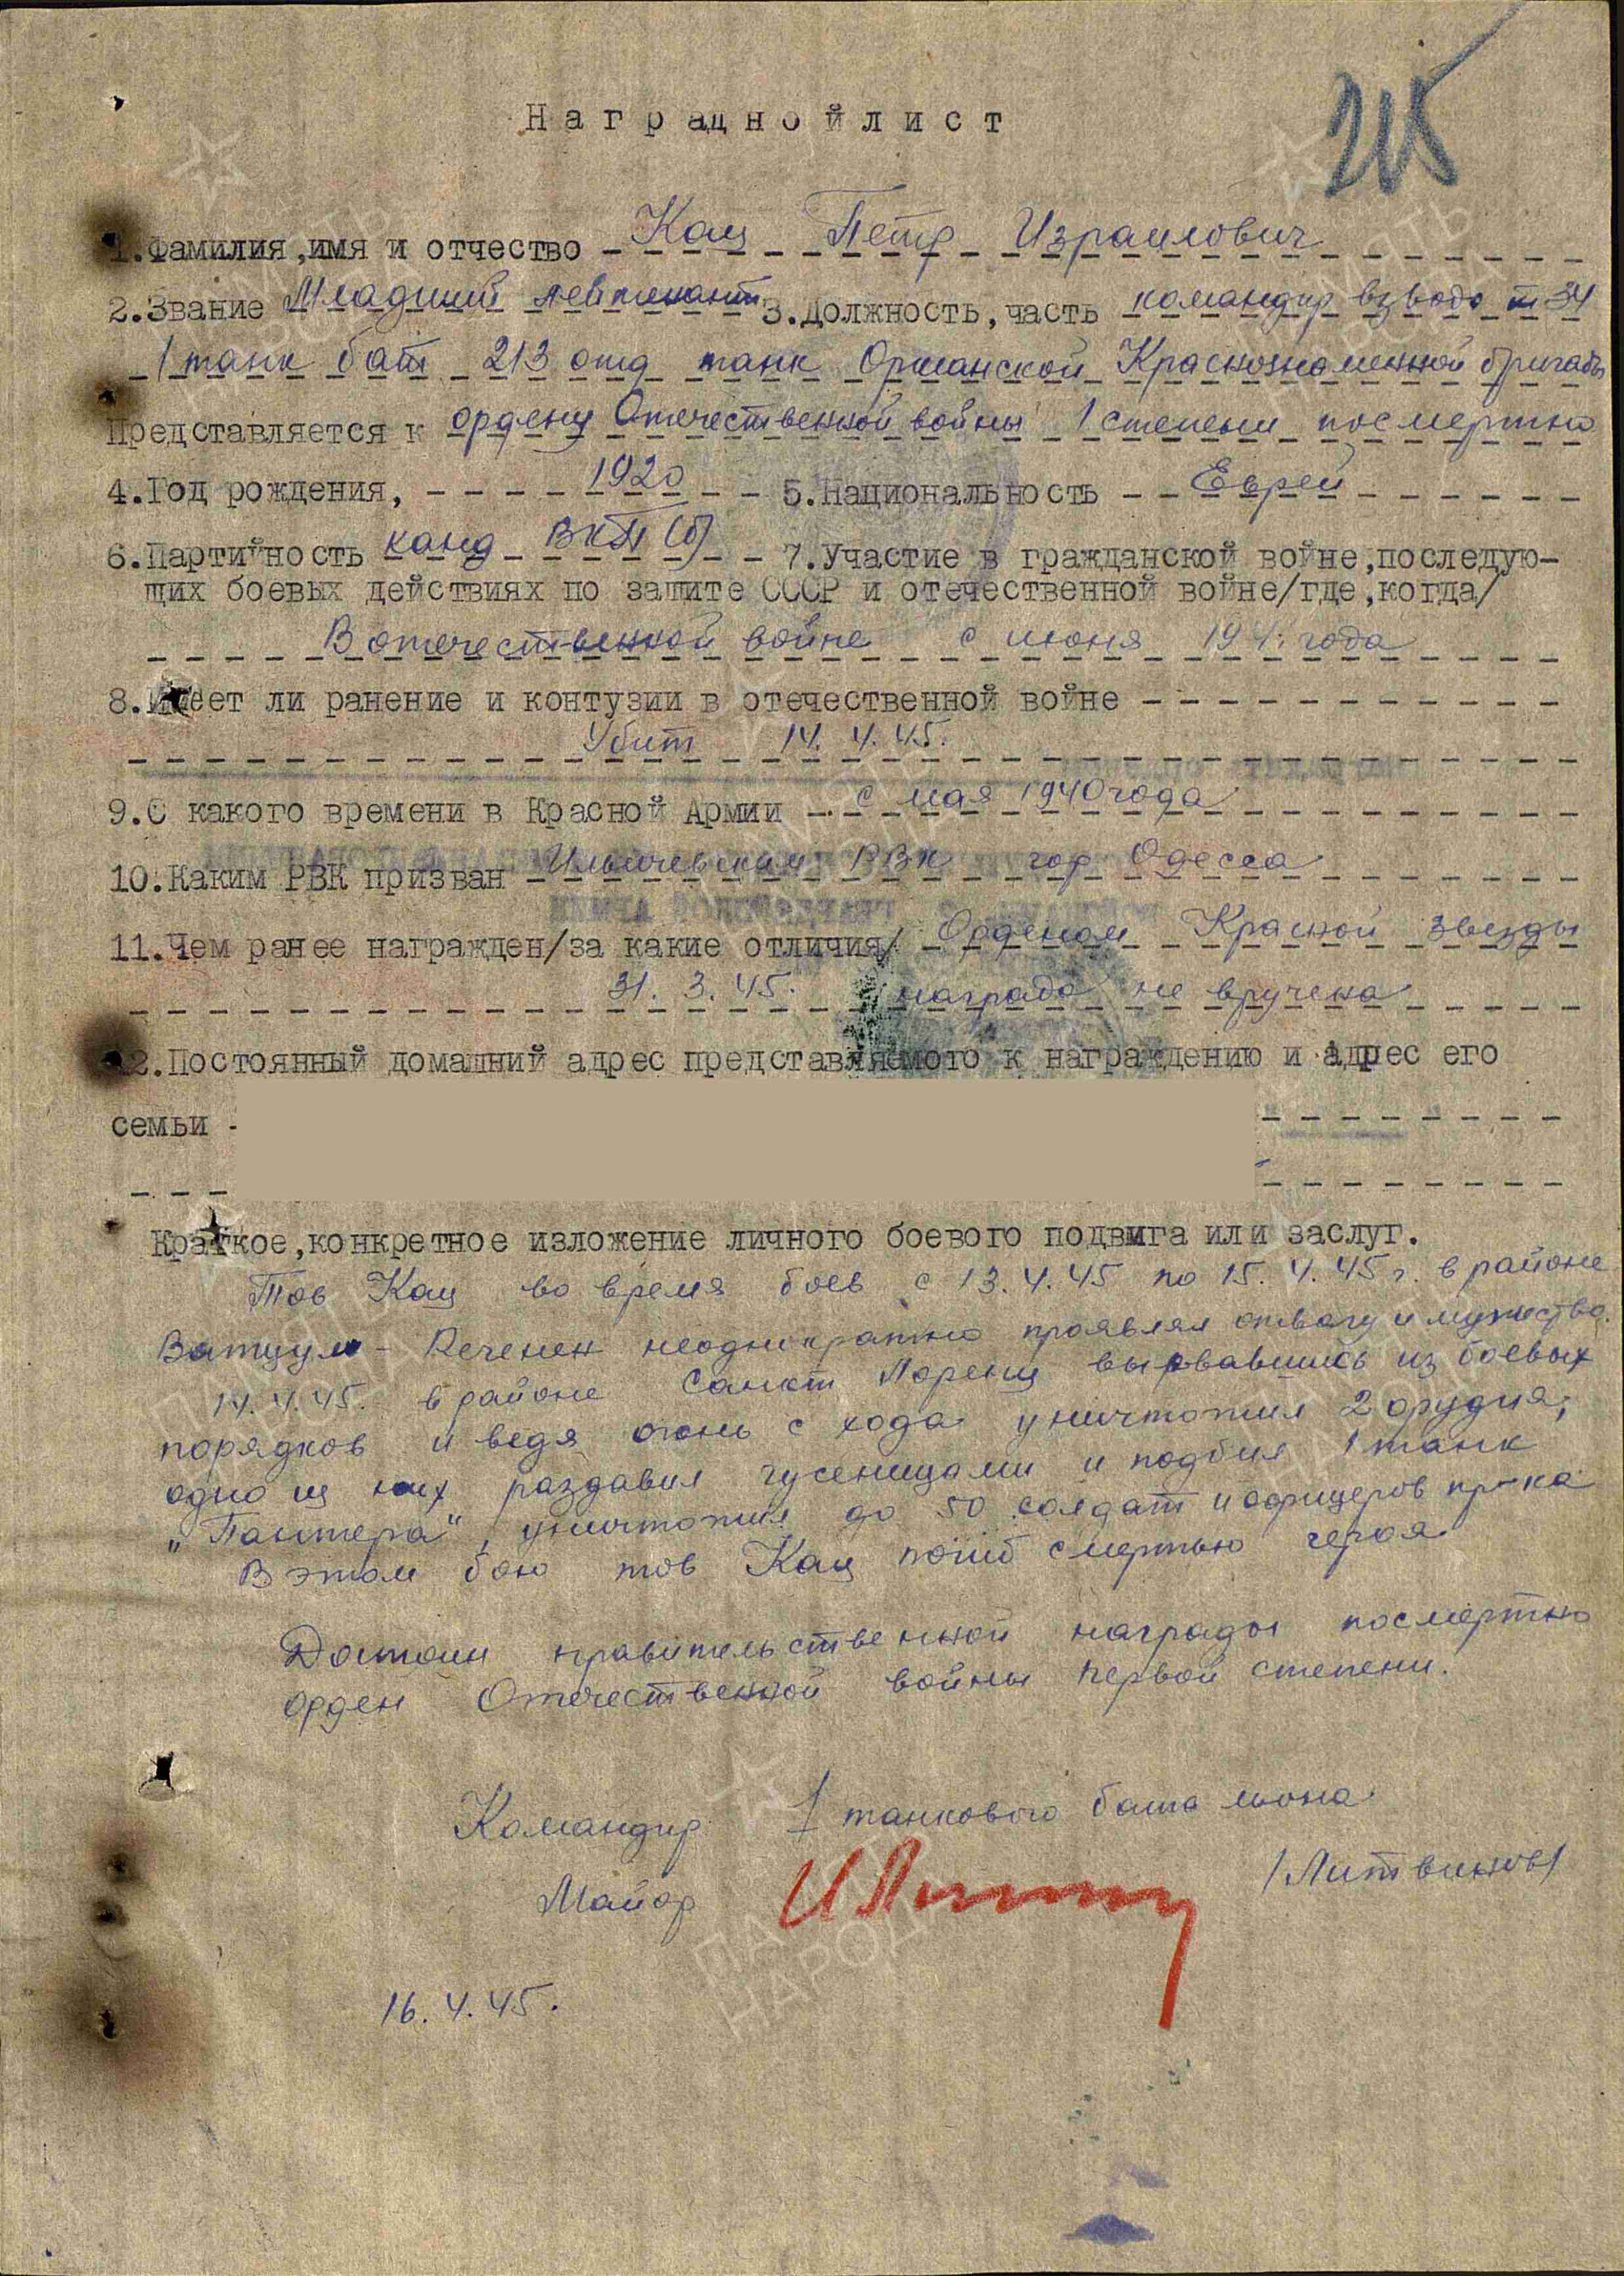 215
Наградной лист
1.Фамилия,имя и отчество Кац Петр Израилович
2.Звание Младший лейтенант 3.Должность,часть командир взвода т 34
1 танк бат 213 отд танк Оршанской Краснознаменной бригады
Представляется к ордену Отечественной войны 1 степени посмертно
4.Год рождения, 1920 5.Национальность Еврей
6.Партийность канд ВКП(б) 7.Участие в гражданской войне,последую-
щих боевых действиях по защите СССР и отечественной войне/где,когда/
В отечественной войне с июня 1941 года
8.Имеет ли ранение и контузии в отечественной войне
Убит 14.4.45.
9.С какого времени в Красной Армии с мая 1940 года
10.Каким РВК призван Ильичевским РВК гор Одесса
11.Чем ранее награжден/за какие отличия/ Орденом Красной звезды
31.3.45. награда не вручена
12.Постоянный домашний адрес представляемого к награждению и адрес его
семьи
Краткое,конкретное изложение личного боевого подвига или заслуг.
Тов Кац во время боев с 13.4.45 по 15.4.45 г. в районе
неоднократно проявлял отвагу и мужество.
14.4.45. в районе Санкт Лоренц вырвавшись из боевых
порядков и ведя огонь с хода уничтожил 2 орудия,
одно из них раздавил гусеницами и подбил 1 танк
„Пантера", уничтожил до 50 солдат и офицеров пр-ка
В этом бою тов Кац погиб смертью героя
Достоин правительственной награды посмертно
орден Отечественной войны первой степени.
Командир 1 танкового батальона
Майор /Литвинов/
16.4.45.
ПАМЯТЬ
НАРОДА